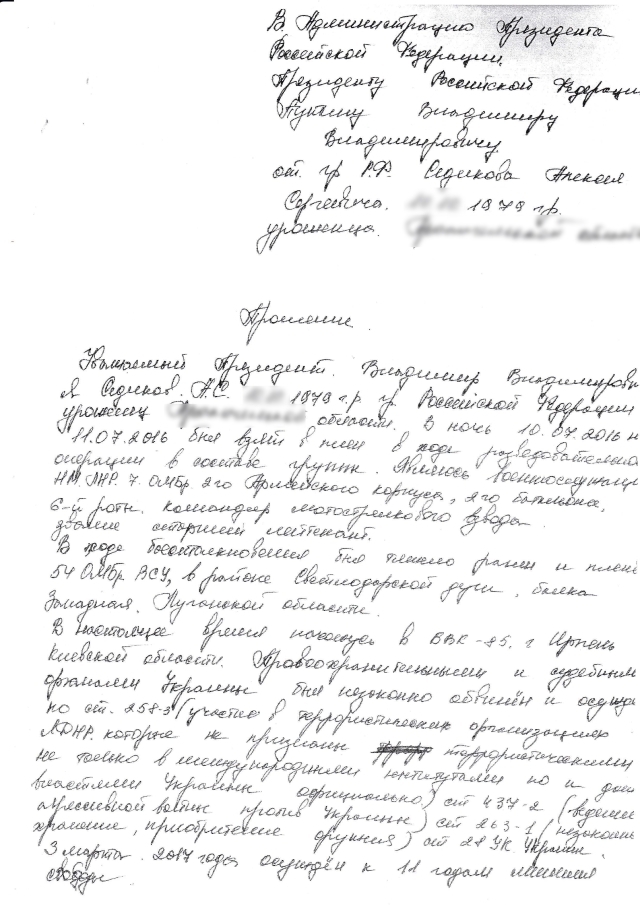 В Администрацию Президента
Российской Федерации.
Президенту Российской Федерации
Путину Владимиру
Владимировичу
от гр Р.Ф. Седикова Алексея
Сергеевича. 1979 г.р.
уроженца.
Прошение.
Уважаемый Президент. Владимир Владимирович
Я Седиков. А.С. 1979 г.р гр. Российской Федерации
уроженец области. В ночь 10.07.2016 н
11.07.2016 был взят в плен в ходе разведовательной
операции в составе группы. Являюсь военнослужащим
НМ ЛНР. 7 ОМбр 2го Армейского корпуса, 2го батальона,
6-й роты. командир мотострелкового взвода.
звание старший лейтенант.
В ходе боестолкновения был тяжело ранен и пленён
54 ОМбр ВСУ, в районе Светлодарской дуги, балка
Западная. Луганской области.
В настоящее время нахожусь в ВВК-85. г Ирпень
Киевской области. Правоохранительными и судебными
органами Украины был незаконно обвинён и осужден
по ст. 258-3 (участие в террористических организациях
ЛДНР. которые не признаны террористическими
не только в международными институтами но и
властями Украины официально) ст 437-2 (ведение
агрессивной войны против Украины) ст 263-1 (незаконное
хранение, приобретение оружия) ст 28 УК Украины.
3 марта. 2017 года осуждён к 11 годам лишения
свободы